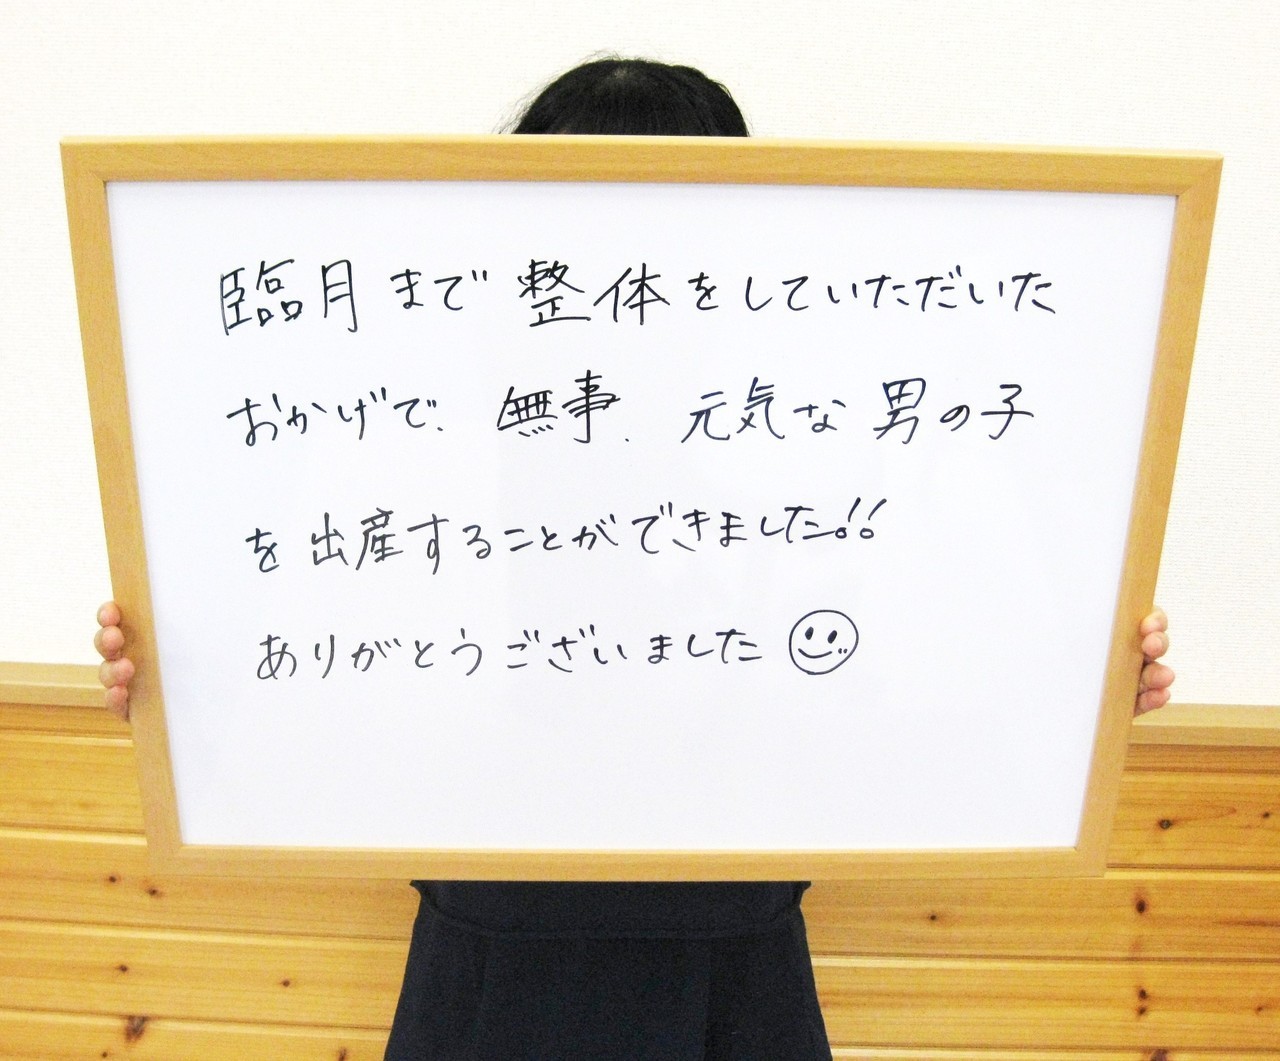 臨月まで整体をしていただいた
おかげで、無事、元気な男の子
を出産することができました!!
ありがとうございました